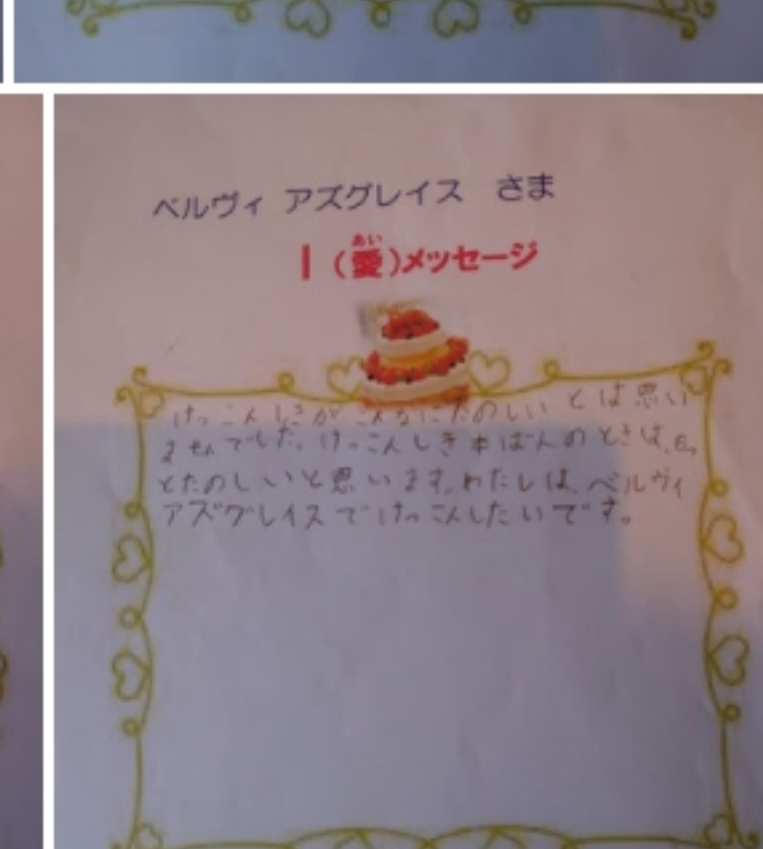 ベルヴィ アズグレイス さま
I(愛)メッセージ
あい
けっこんしきがこんなにたのしいとは思い
ませんでした。けっこんしき本ばんのときは、もっ
とたのしいと思います。わたしは、ベルヴィ
アズグレイスでけっこんしたいです。